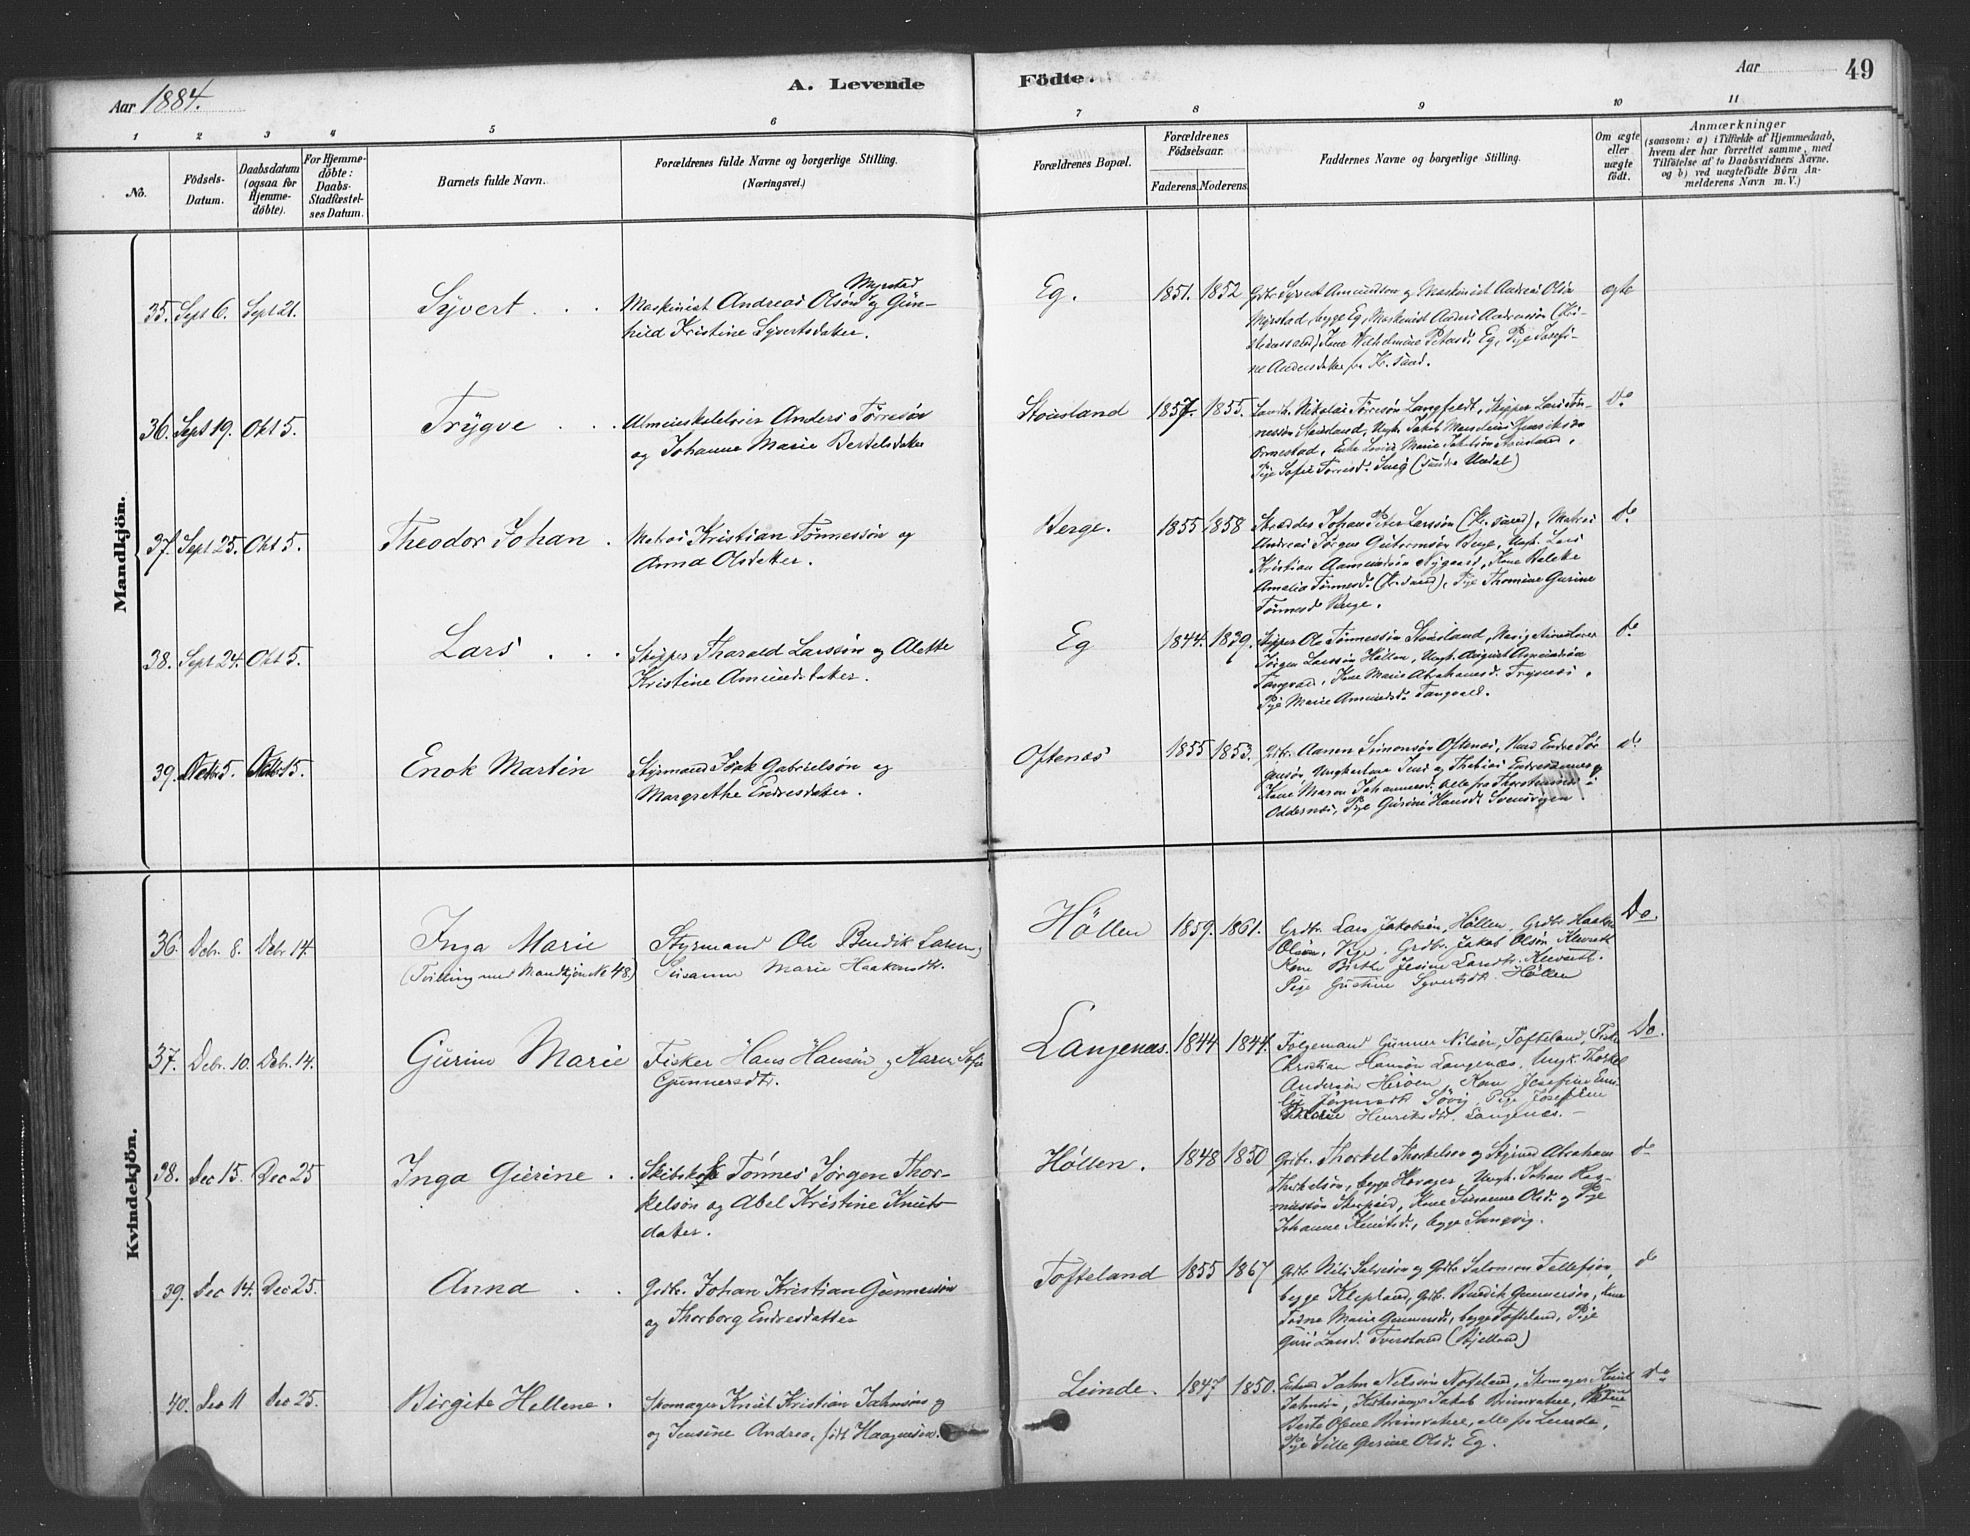 Aar 1884.
A. Levende
Födte.
Aar
49
1 2 3 4 5 6 7 8 9 10 11
No.
Födsels-
Datum.
Daabsdatum
(ogsaa for
Hjemme-
döbte).
For Hjemme-
döbte:
Daabs-
Stadfæstel-
ses Datum.
Barnets fulde Navn.
Forældrenes fulde Navne og borgerlige Stilling.
(Næringsvei.)
Forældrenes Bopæl.
Forældrenes
Födselsaar.
Faderens. Moderens.
Faddernes Navne og borgerlige Stilling.
Om ægte
eller
uægte
födt.
Anmærkninger
(saasom: a) i Tilfælde af Hjemmedaab,
hvem der har forrettet samme, med
Tilföielse af to Daabsvidners Navne.
og b) ved uægtefödte Börn An-
melderens Navn m. V.)
Mandkjön.
35. Sept 6. Sept 21. Syvert
Myrstad
Maskinist Andreas Olsøn og Gun-
hild Kristine Syvertsdater.
Eg. 1851. 1852
Gdbr. Syvert Amundsøn og Maskinist Andreas Olsøn
Myrstad, begge Eg, Maskinist Anders Andreassøn (Kri-
stianssand), Kone Wilhelmine Petersd. Eg, Pige Josefi-
ne Andersdater fra Kr. sand.
ægte
36. Sept 19. Okt 5. Trygve
Almueskolelærer Anders Tørresøn
og Johanne Marie Bertelsdater
Stousland 1857. 1855.
Nikolai Tørresøn Langfeldt, Skipper Lars Tøn-
nessøn Stousland, Ungk. Jakob Mandius Henriksøn
Ormestad, Enke Lovise Marie Jakobsøn Stousland,
Pige Sofie Tørresd. (Søndre Undal)
do
37. Sept 25. Okt 5. Theodor Johan
Matros Kristian Tønnessøn og
Anna Olsdater.
Berge. 1855 1858
Skrædder Johan Peter Larssøn (Kr. sand), Matros
Andreas Jørgen Guttormsøn Berge, Ungk. Lars
Kristian Aamundsøn Nygaard, Kone
Amalia Tønnesd. (Kr. sand), Pige Thomine Gurine
Tønnesd. Berge.
do
38. Sept 24. Okt 5. Lars
Skipper Tharald Larssøn og Alette
Kristine Amundsdater.
Eg 1844. 1839.
Skipper Ole Tønnessøn Stousland, Navigationslærer
Jørgen Larssøn Høllen, Ungk. August Amundsøn
Tangvald, Kone Marie Abrahamsd. Trysnes,
Pige Marie Amundsd. Tangvald.
do
39. 5. 15. Enok Martin
Styrmand Isak Gabrielsøn og
Margrethe Endresdater.
Oftenæs 1855 1853.
Gdbr. Aanen Simonsøn Oftenæs, Endre Jør-
gensøn, Ungkarlene Jens og Thobias Endressønner og
Kone Maren Johannesd. alle fra
Oddernæs, Pige Gurine Hansd. Svensvigen.
do
Kvindekjön.
36. Debr. 8. Debr 14. Inga Marie
(Tvilling med Mandkjön No 48.)
Styrmand Ole Bendik Larsen,
Susanne Marie Haakonsdtr.
Höllen 1859. 1861.
Grdbr. Lars Jakobsön, Höllen, Grdbr. Haakon
Olsön, Grdbr. Jakob Olsön, Kleveth
Kone Birthe Jesine Larsdtr. Kleveth.
Pige Gustine Syvertsdt. Höllen
Do.
37. Debr. 10. Debr. 14. Gurine Marie
Fisker Hans Hansön og Karen Sofie
Gunnersdtr.
Langenæs. 1844 1844.
Folgemand Gunner Nilsön, Tofteland, Fisker
Christian Hansön Langenæs, Ungk. Thorkel
Andersön Heröen, Kone Josefine Emi-
lie Jörgensdtr Sövig, Pige Josefine
Marie Henriksdtr. Langenæs.
Do
38. Dec 15. Dec 25 Inga Gurine
Tønnes Jørgen Thor-
kelsøn og Abel Kristine Knuts-
dater.
Høllen. 1848 1850
Gdbr. Thorkel Thorkelsøn og Styrmd Abraham
Thorkelsøn, begge Ungk. Johan Ras-
mussøn, Kone Susanne Olsd. og Pige
Johanne Knutsd., begge Langvig.
do
39. Dec 14. Dec 25. Anna
Gdbr. Johan Kristian Gunnersøn
og Thorborg Endresdatter
Tofteland 1855 1867
Gdbr Nils Salvesøn og Gdbr. Salomon Tellefsøn,
begge Klepland, Gdbr. Bendik Gunnersøn, Kone
Tomine Marie Gunnersd., begge Tofteland, Pige
Guri Larsd. (Bjelland)
do
40. Dec 11 Dec 25. Birgite Hellene.
Skomager Knut Kristian Jahnsøn og
og Jensine Andrea, født Haagensen.
Lunde. 1847 1850.
Jahn Nilssøn Nofteland, Skomager Knut
Jahnsøn, Kirkesanger Jakob Brinvatne, Kone
Berte Olene Brinvatne, alle fra Lunde,
Pige Sille Gurine Olsd. Eg.
do